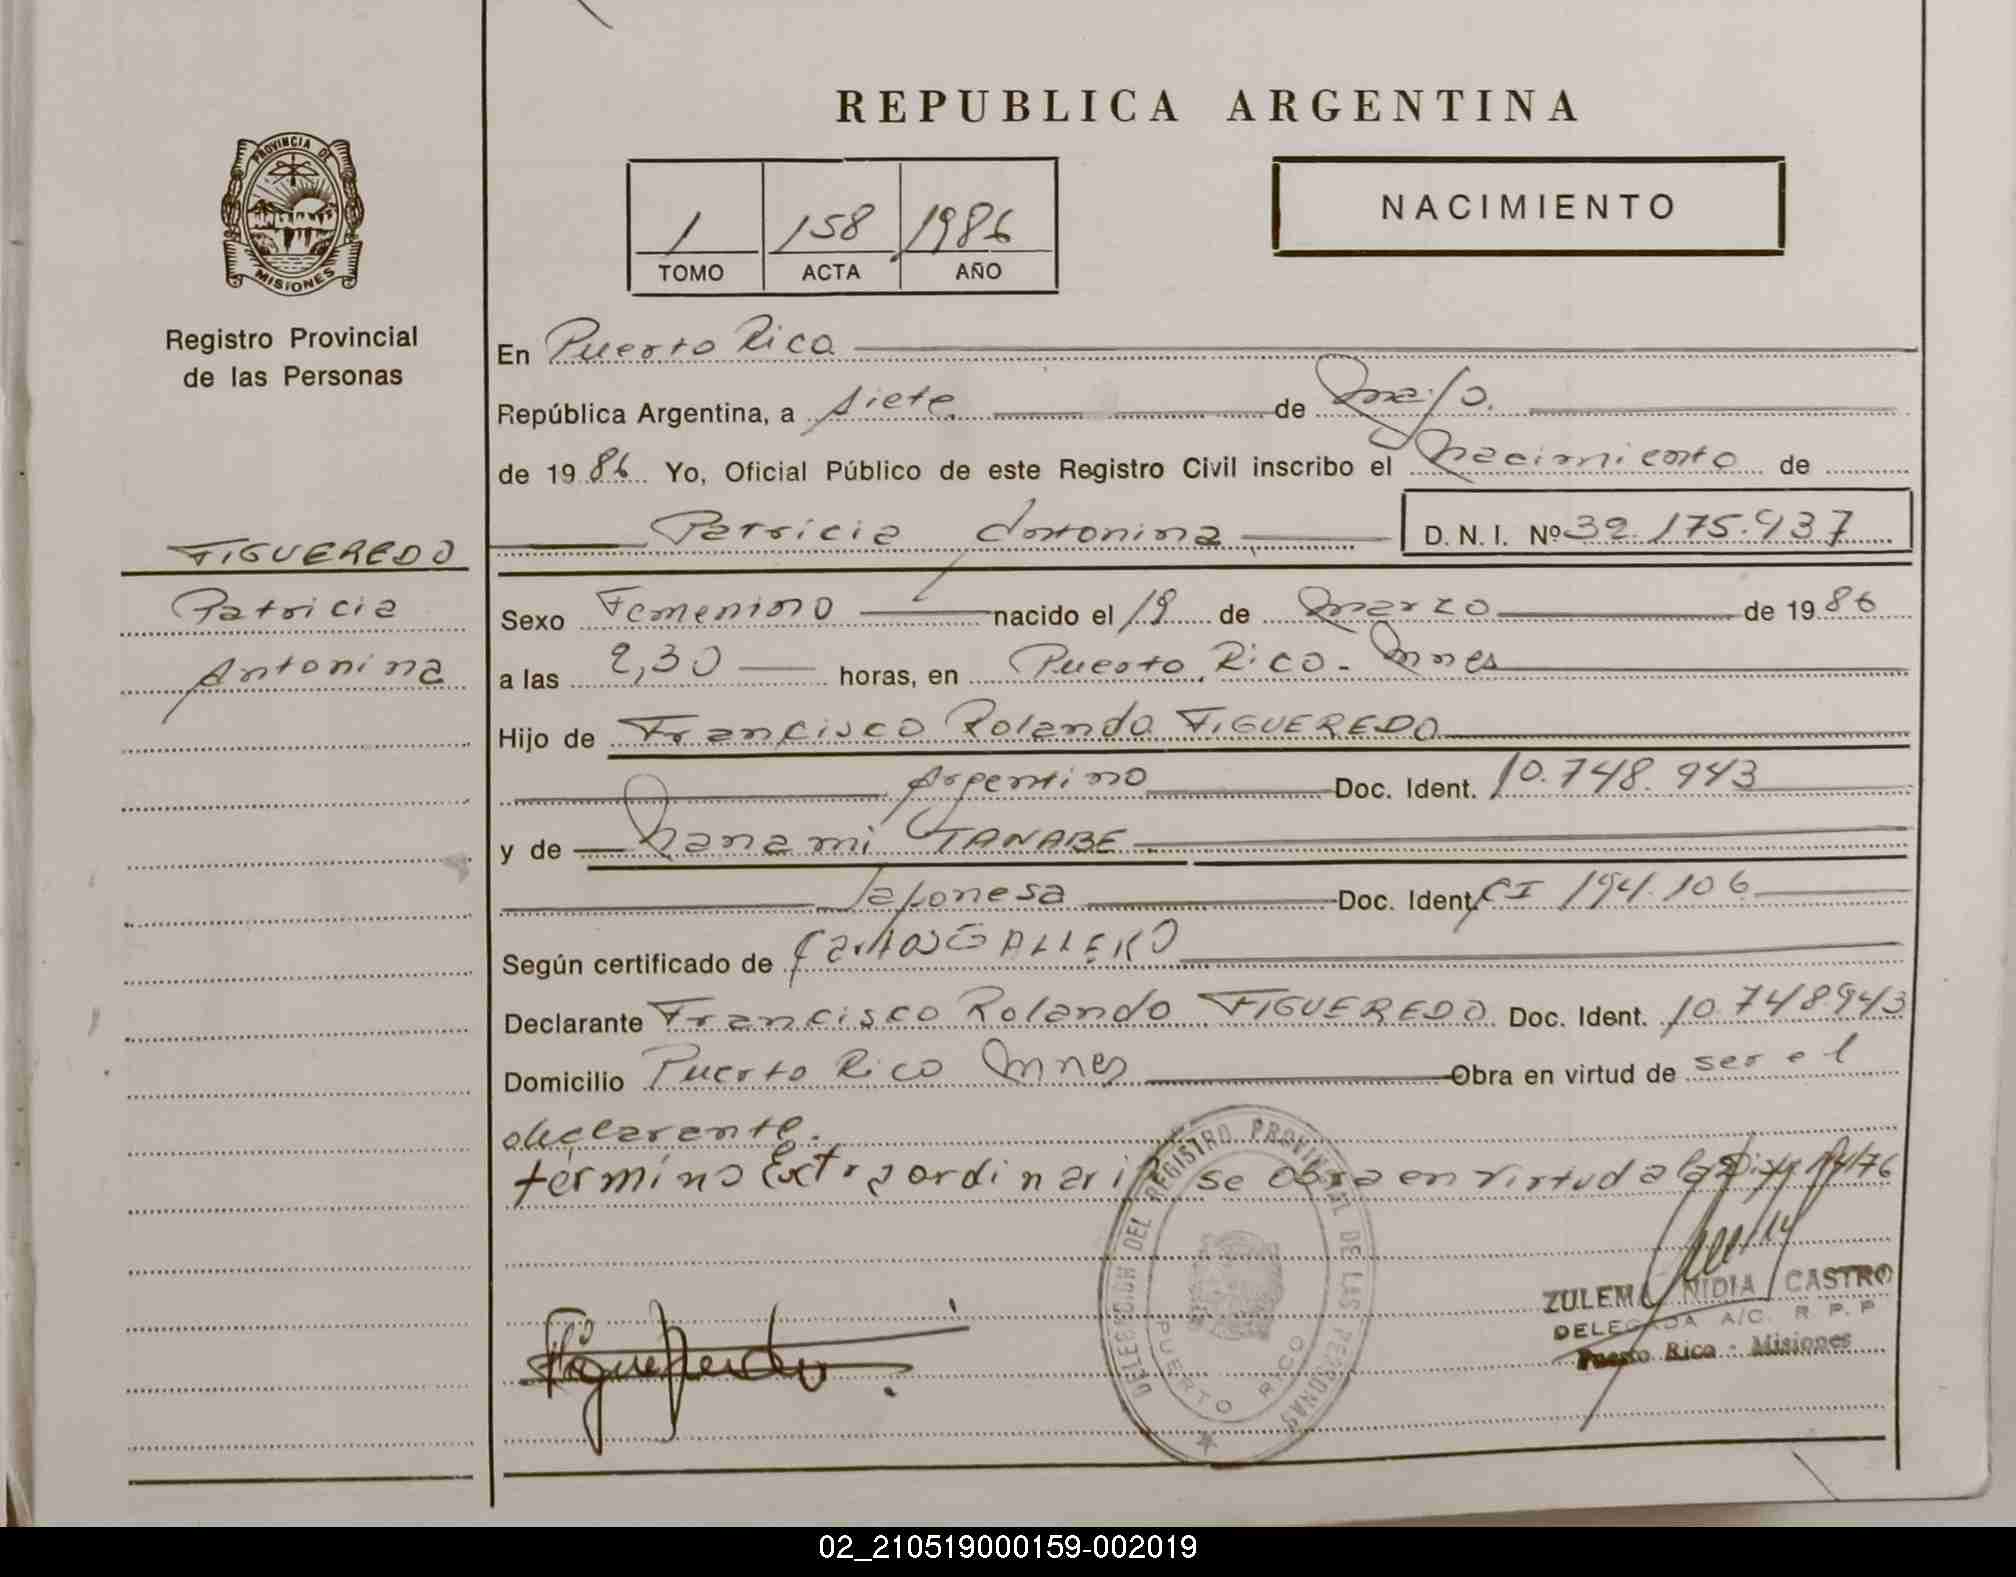 PROVINCIA DE
MISIONES
Registro Provincial
de las Personas
FIGUEREDO
Patricia
Antonina
REPUBLICA ARGENTINA
1 158 1986
TOMO ACTA AÑO
NACIMIENTO
En Puerto Rico
República Argentina, a siete de mayo.
de 1986 Yo, Oficial Público de este Registro Civil inscribo el Nacimiento de
Patricia Antonina D. N. I. Nº 32.175.937
Sexo Femenino nacido el 19 de Marzo de 1986
a las 2,30 horas, en Puerto Rico - Mnes
Hijo de Francisco Rolando FIGUEREDO
Argentino Doc. Ident. 10.748.943
y de Nanami TANABE
Japonesa Doc. Ident. CI 194.106
Según certificado de Carlos GALLERO
Declarante Francisco Rolando FIGUEREDO Doc. Ident. 10.748943
Domicilio Puerto Rico Mnes Obra en virtud de ser el
declarante.
término Extraordinario se obra en virtud a la Disp.
DELEGACION DEL REGISTRO PROVINCIAL DE LAS PERSONAS
PUERTO RICO
ZULEMA NIDIA CASTRO
DELEGADA A/C. R. P. P
Puerto Rico - Misiones
Figueredo
02_210519000159-002019